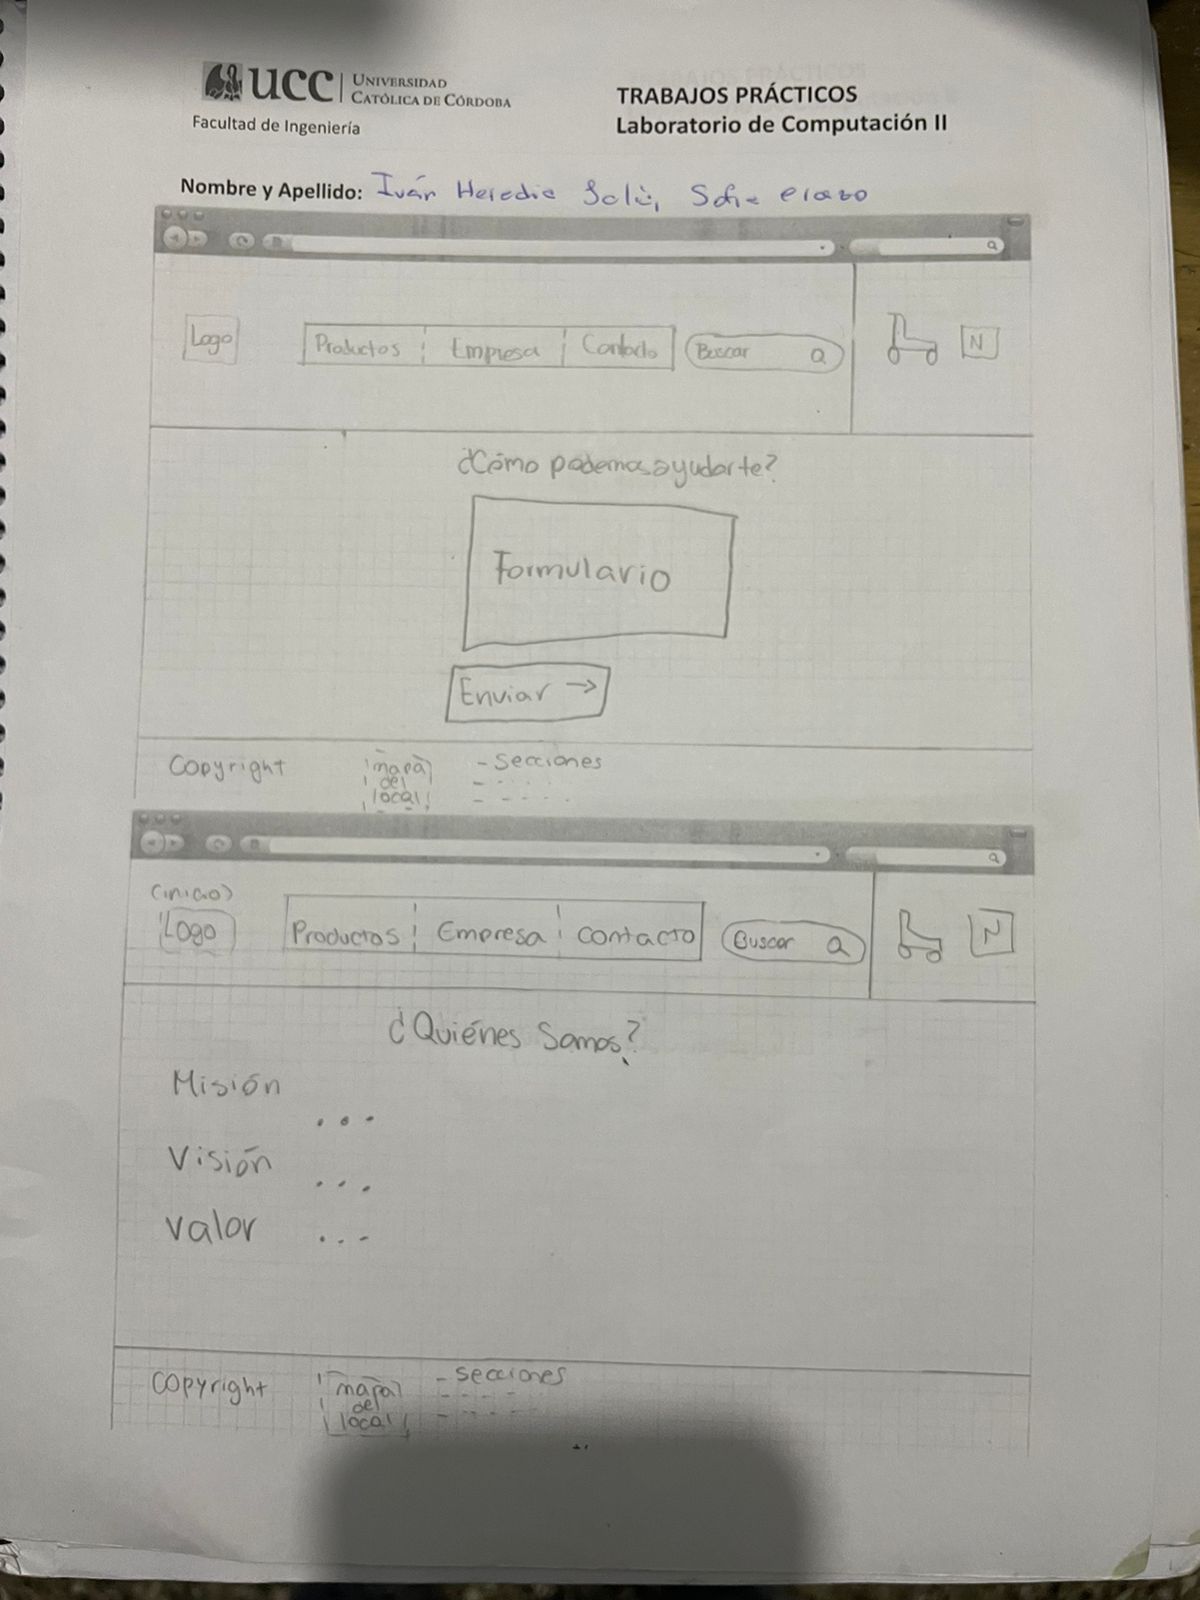 UCC UNIVERSIDAD CATÓLICA DE CÓRDOBA
Facultad de Ingeniería
TRABAJOS PRÁCTICOS
Laboratorio de Computación II
Nombre y Apellido: Iván Heredia
Logo Productos Empresa Contacto Buscar N
¿Cómo podemos ayudarte?
Formulario
Enviar →
Copyright mapa del local - Secciones
(inicio)
Logo Productos Empresa Contacto Buscar N
¿Quiénes Somos?
Misión ...
Visión ...
Valor ...
Copyright mapa del local - Secciones